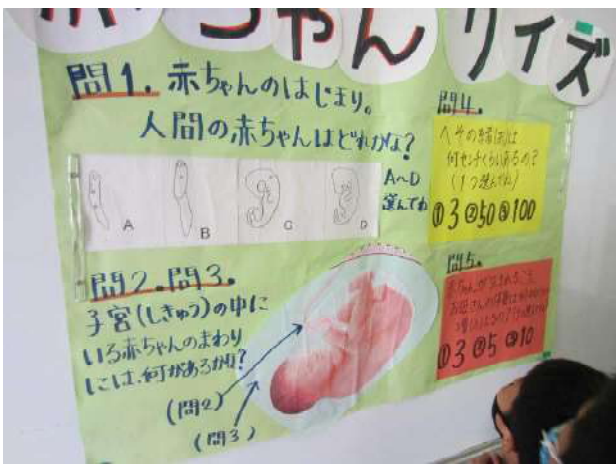 ちゃんクイズ
問1.赤ちゃんのはじまり。
人間の赤ちゃんはどれかな?
A~D
選んでね
A
B
C
D
問2.問3.
子宮(しきゅう)の中に
いる赤ちゃんのまわり
には、何があるかな?
(問2)
(問3)
問4.
へその緒(お)は
何センチくらいあるの?
(1つ選んでね)
①3②50③100
問5.
①3②5③10